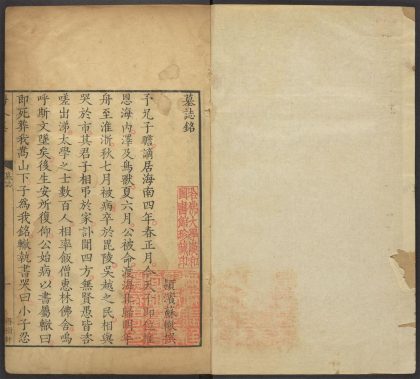 哈佛大學漢和
圖書館珍藏印
墓誌銘
潁濱蘇轍撰
予兄子瞻謫居海南四年春正月今天子即位推
恩海內澤及鳥獸夏六月公被命渡海北歸明年
舟至淮浙秋七月被病卒於毘陵吳越之民相與
哭於市其君子相弔於家訃聞四方無賢愚皆咨
嗟出涕太學之士數百人相率飯僧惠林佛舍嗚
呼斯文墜矣後生安所復仰公始病以書屬轍曰
即死葬我嵩山下子為我銘轍執書哭曰小子忍
墓誌
一